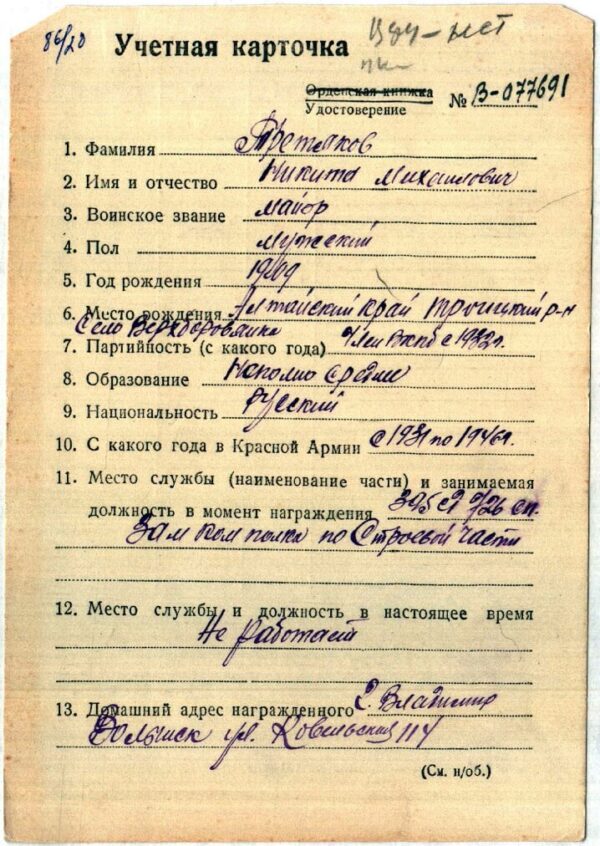 86/20
Учетная карточка
нет
Орденская книжка
Удостоверение № В-077691
1. Фамилия Третьяков
2. Имя и отчество Никита Михайлович
3. Воинское звание майор
4. Пол мужский
5. Год рождения 1909
6. Место рождения Алтайский край Троицкий р-н
Село
7. Партийность (с какого года) Член ВКПб с 1932г.
8. Образование Неполно средне
9. Национальность Русский
10. С какого года в Красной Армии с 1931 по 1946г.
11. Место службы (наименование части) и занимаемая
должность в момент награждения 395 сд 726 сп.
Зам ком полка по Строевой части
12. Место службы и должность в настоящее время
Не работает
13. Домашний адрес награжденного г. Владимир
Волынск ул. Ковельский 114
(См. н/об.)